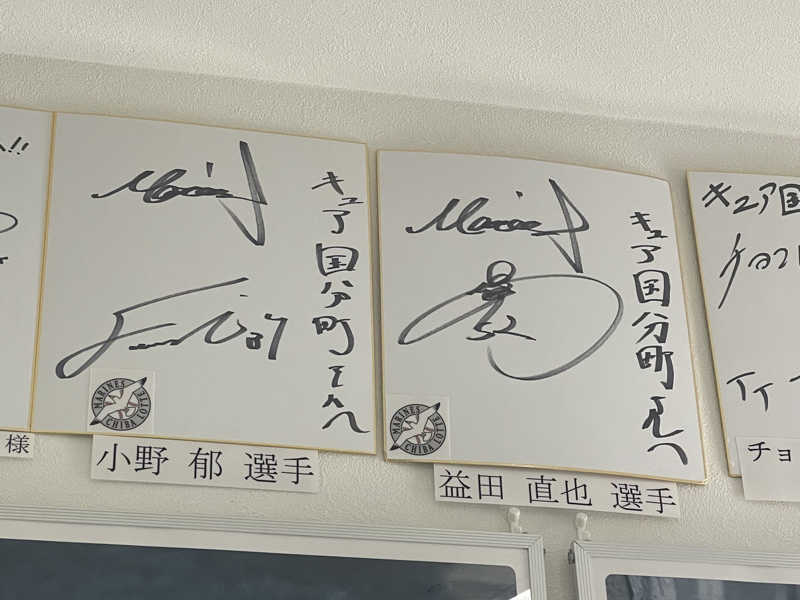 !!
様
Marines
キュア国分町さんへ
37
MARINES
CHIBA LOTTE
小野 郁 選手
Marines
キュア国分町さんへ
52
MARINES
CHIBA LOTTE
益田 直也 選手
キュア国
チョコ
チョ